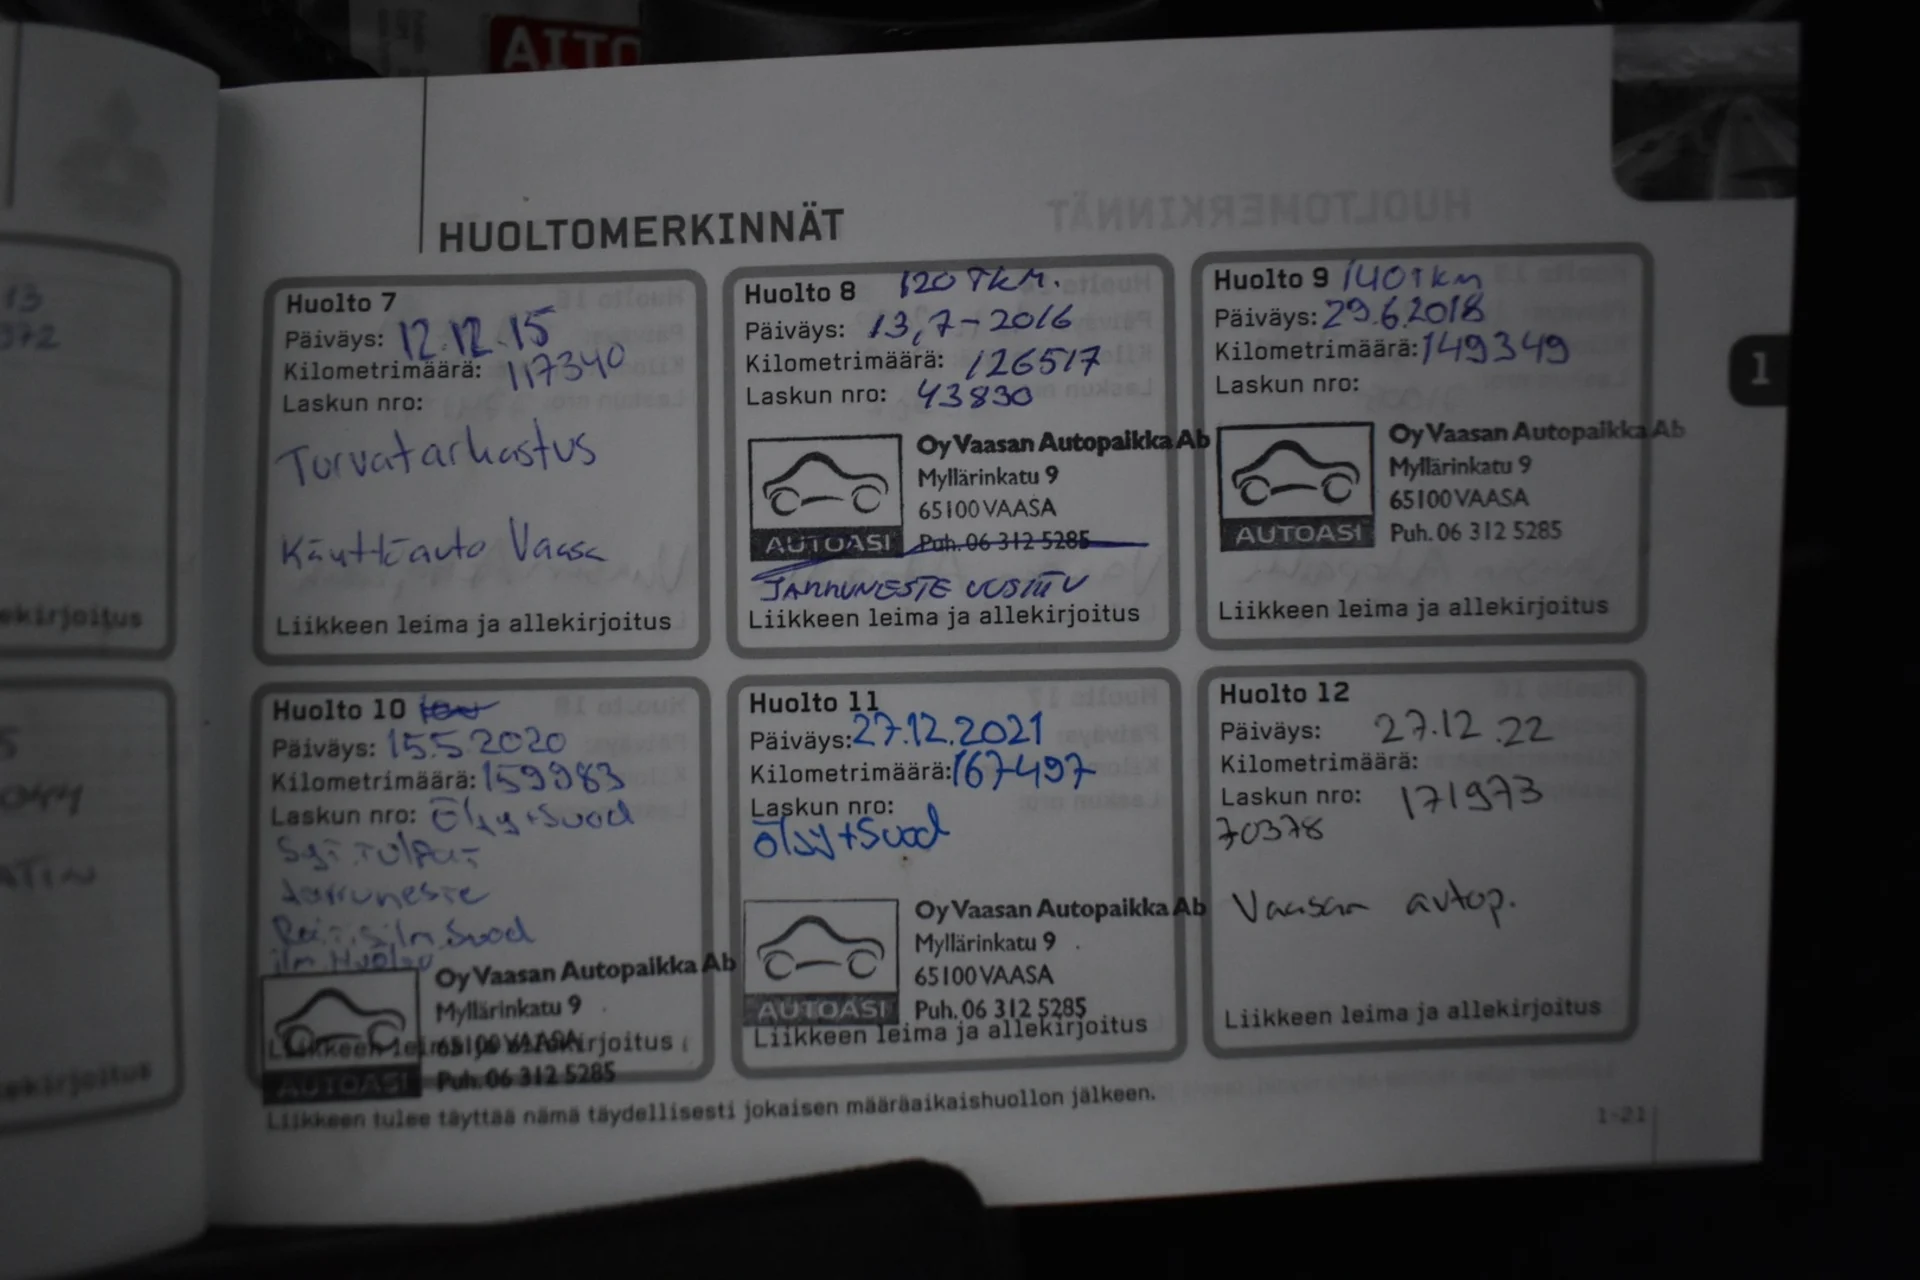 AITO
13
972
ekirjoitus
5
044
ATIN
ekirjoitus
HUOLTOMERKINNÄT
Huolto 7
Päiväys: 12.12.15
Kilometrimäärä: 117340
Laskun nro:
Turvatarkastus
Käyttöauto Vaasa
Liikkeen leima ja allekirjoitus
Huolto 8 120 TKM.
Päiväys: 13,7-2016
Kilometrimäärä: 126517
Laskun nro: 43830
Oy Vaasan Autopaikka Ab
Myllärinkatu 9
65100 VAASA
AUTOASI Puh. 06 312 5285
JARRUNESTE UUSITTU
Liikkeen leima ja allekirjoitus
Huolto 9 140Tkm
Päiväys: 29.6.2018
Kilometrimäärä: 149349
Laskun nro:
Oy Vaasan Autopaikka Ab
Myllärinkatu 9
65100 VAASA
AUTOASI Puh. 06 312 5285
Liikkeen leima ja allekirjoitus
Huolto 10
Päiväys: 15.5.2020
Kilometrimäärä: 159983
Laskun nro: Öljy+Suod
Jarruneste
Suod
ilm Huolto
Oy Vaasan Autopaikka Ab
Myllärinkatu 9
65100 VAASA
Liikkeen leima ja allekirjoitus
AUTOASI Puh. 06 312 5285
Huolto 11
Päiväys: 27.12.2021
Kilometrimäärä: 167497
Laskun nro:
Öljy+Suod
Oy Vaasan Autopaikka Ab
Myllärinkatu 9
65100 VAASA
AUTOASI Puh. 06 312 5285
Liikkeen leima ja allekirjoitus
Huolto 12
Päiväys: 27.12.22
Kilometrimäärä:
Laskun nro: 171973
70378
Vaasan autop.
Liikkeen leima ja allekirjoitus
Liikkeen tulee täyttää nämä täydellisesti jokaisen määräaikaishuollon jälkeen.
1-21
1